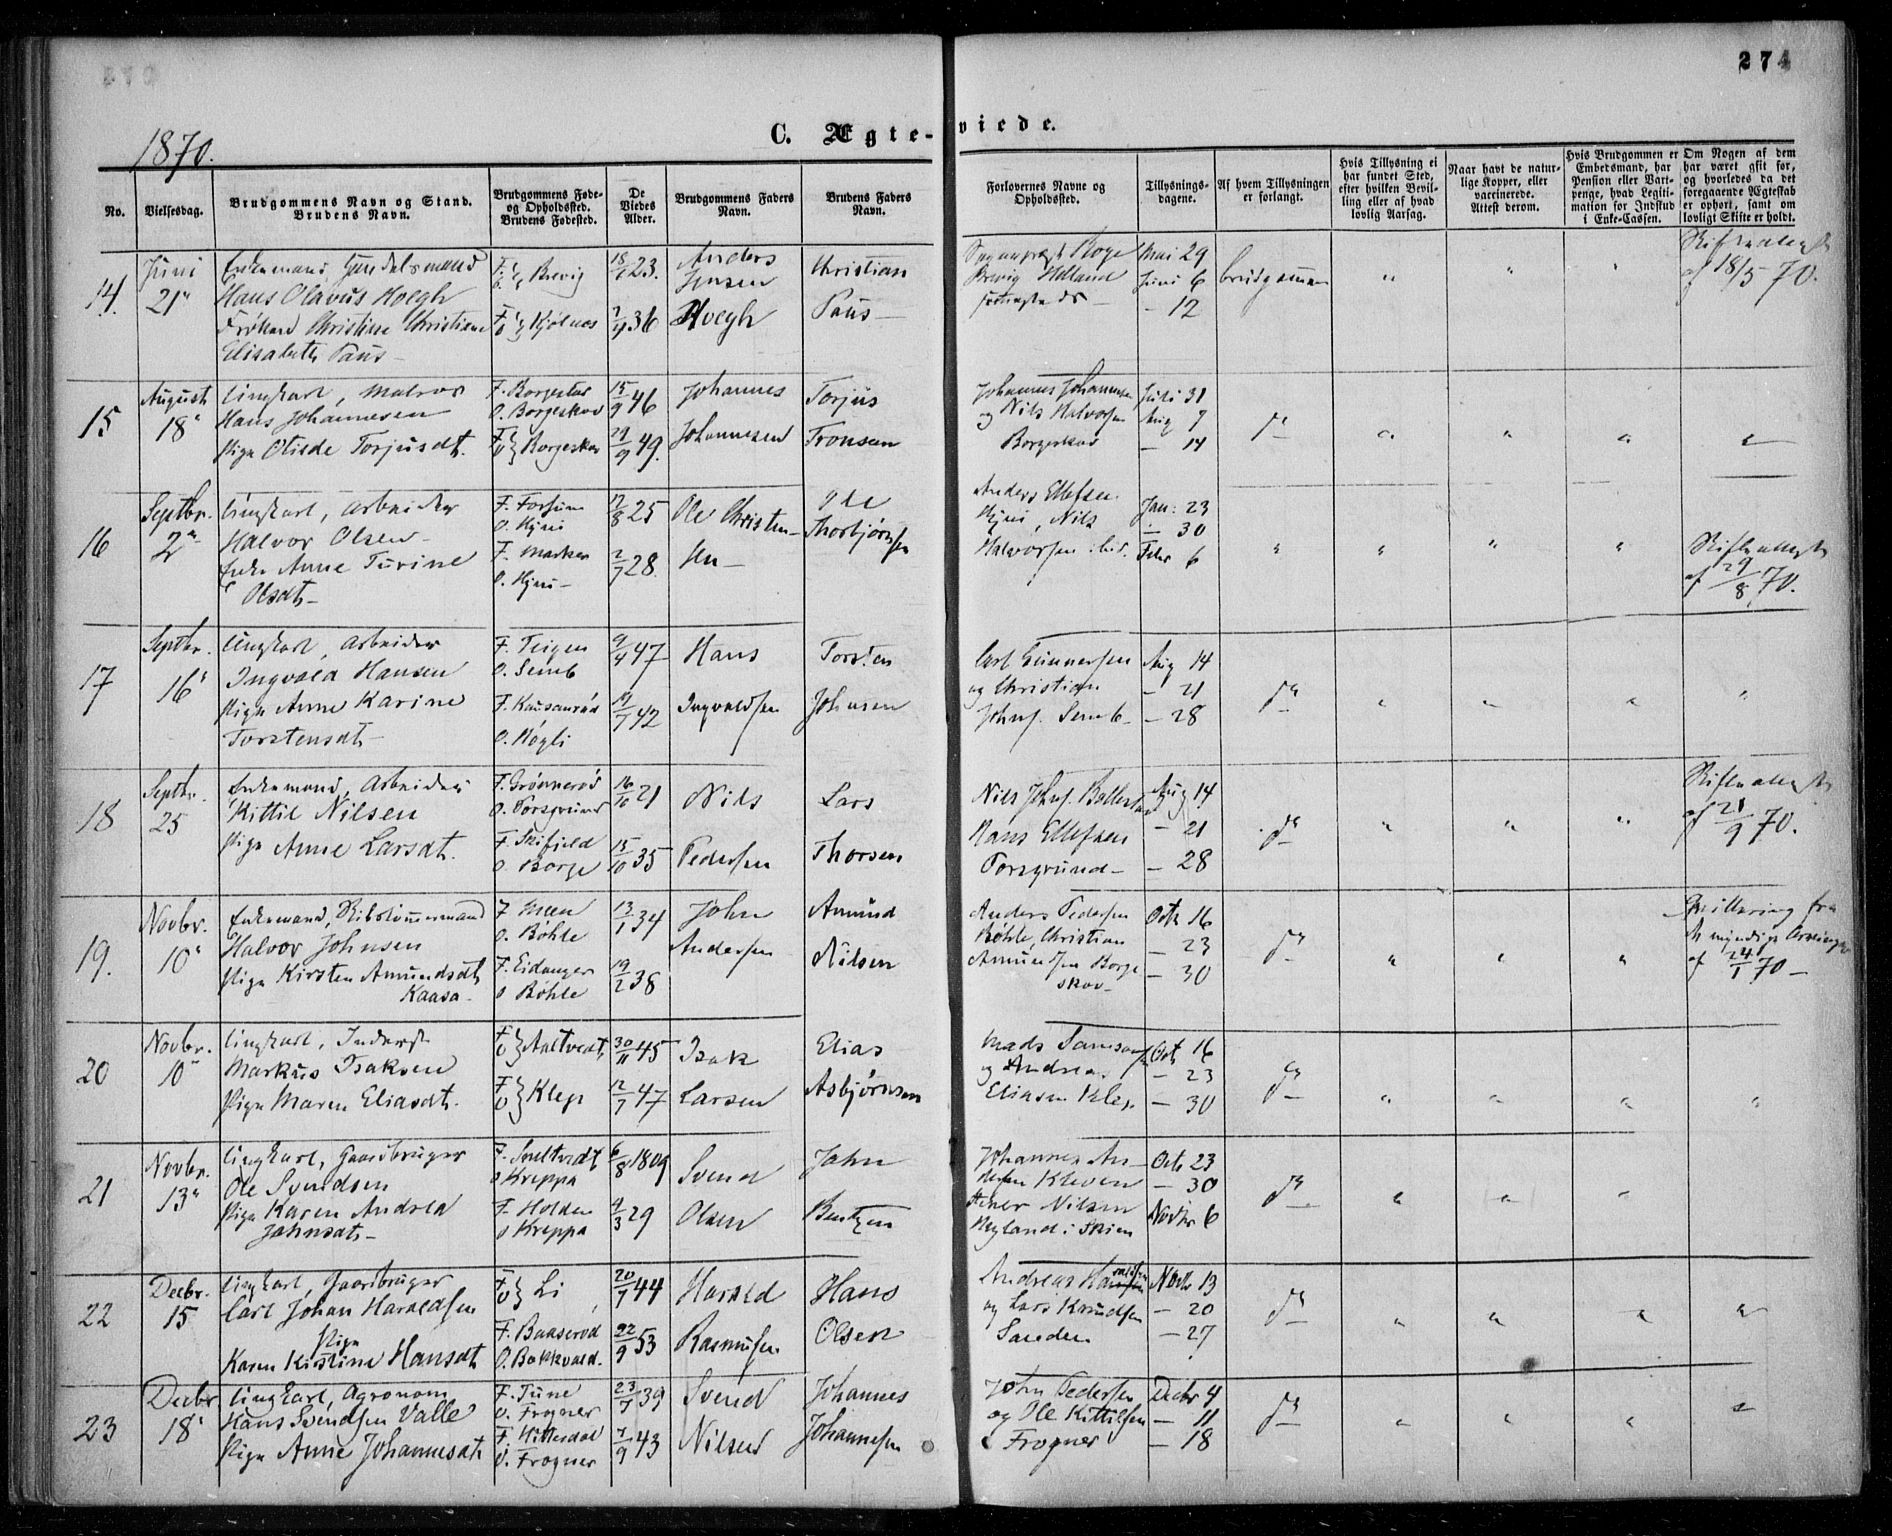 274
1870.
C. Ægte-viede.
No.
Vielsesdag.
Brudgommens Navn og Stand.
Brudens Navn.
Brudgommens Føde-
og Opholdssted.
Brudens Fødested.
De
Viedes
Alder.
Brudgommens Faders
Navn.
Brudens Faders
Navn.
Forlovernes Navne og
Opholdssted.
Tillysnings-
dagene.
Af hvem Tillysningen
er forlangt.
Hvis Tillysning ei
har fundet Sted,
efter hvilken Bevil-
ling eller af hvad
lovlig Aarsag.
Naar havt de natur-
lige Kopper, eller
vaccinerede.
Attest derom.
Hvis Brudgommen er
Embedsmand, har
Pension eller Vart-
penge, hvad Legiti-
mation for Indskud
i Enke-Cassen.
Om Nogen af dem
har været gift før,
og hvorledes da det
foregaaende Ægteskab
er ophørt, samt om
lovligt Skifte er holdt.
14.
Juni
21"
Enkemand, Handelsmand
Hans Olavus Høegh
Frøken Christine Christiane
Elisabeth Paus
F. O. } Brevig
F. O. } Kjølnes
18/1 23.
7/4 36
Anders
Jensen
Høegh
Christian
Paus
Brevig
Mai 29
Juni 6
— 12
brudgommen
" " "
Skifteattest
af 18/5 70.
15
August
18"
Ungkarl, Matros
Hans Johannesen
Pige Olisde Torjusdt.
F. Borgestad
O. Borgeskov
F. O. } Borgeskov
15/9 46
29/9 49.
Johannes
Johannesen
Torjus
Tronsen
Johannes Johannesen
og Nils Halvorsen
Borgeskov
Juli 31
Aug 7
— 14
do
" " " "
16
Septbr.
2"
Ungkarl, Arbeider
Halvor Olsen
Enke Anne Turine
Olsdt.
F. Forsum
O. Hjini
F. Marker
O. Hjini
12/8 25
2/7 28.
Ole Christen-
sen
Ole
Thorbjørnsen
Anders Ellefsen
Hjini, Nils
Halvorsen ibid.
Jan: 23
— 30
Febr 6
" " " "
Skifteattest
af 29/8 70.
17
Septbr.
16"
Ungkarl, Arbeider
Ingvald Hansen
Pige Anne Karine
Torstensdt.
F. Teigen
O. Semb
F. Kausanrød
O. Høgli
9/4 47
19/7 42
Hans
Ingvaldsen
Torsten
Johnsen
Carl Gunnersen
og Christian
Johns. Semb
Aug 14
— 21
— 28
do
" " " "
18
Septbr.
25
Enkemand, Arbeider
Kittil Nilsen
Pige Anne Larsdt.
F. Grønnerød
O. Porsgrund
F. Skifjeld
O. Borge
16/10 21
15/10 35
Nils
Pedersen
Lars
Thorsen
Nils Johns. Ballestad
Hans Ellefsen
Porsgrund
Aug 14
— 21
— 28
do
" " "
Skifteattest
af 21/9 70.
19.
Novbr.
10"
Enkemand, Skibstømmermand
Halvor Johnsen
Pige Kirsten Amundsdt.
Kaasa
F. Meen
O. Bøhle
F. Eidanger
O Bøhle
13/1 34
19/2 38
John
Andersen
Amund
Nilsen
Anders Pedersen
Bøhle, Christian
Amundsen Borge
skov
Octr 16
— 23
— 30
do
" " "
Qvittering fra
de myndige Arvinger
af 24/1 70
20
Novbr.
10"
Ungkarl, Inderst
Markus Isaksen
Pige Maren Eliasdt.
F. O. } Aaltvedt
F. O. } Klep
30/11 45
12/7 47
Isak
Larsen
Elias
Asbjørnsen
Mads Samsonsen
og Andreas
Eliasen Klep
Octr 16
— 23
— 30
do
" " " "
21
Novbr.
13"
Ungkarl, Gaardbruger
Ole Svendsen
Pige Karen Andrea
Jahnsdt.
F. Snelltvedt
O Kreppa
F. Holden
O Kreppa
6/8 1809
9/3 29
Svend
Olsen
Jahn
Bentzen
Johannes An-
dersen Kleven
Nilsen
i Skien
Octr 23
— 30
Novbr 6
do
" " "
22
Decbr.
15
Ungkarl, Gaardbruger
Carl Johan Haraldsen
Pige
Karen Kirstine Hansdt
F. O. } Li
F. Baaserød
O. Bakkvald.
20/7 44
22/9 53
Harald
Rasmussen
Hans
Olsen
Andreas Haraldsen
og Lars Knudsen
Sanden
Novbr 13
— 20
— 27
do
" " " "
23
Decbr.
18"
Ungkarl, Agronom
Hans Svendsen Valle
Pige Anne Johannesdt.
F. Tune
O. Frogner
F. Hitterdal
O. Frogner
23/7 39
7/9 43
Svend
Nilsen
Johannes
Johannesen
John Pedersen
og Ole Kittilsen
Frogner
Decbr 4
— 11
— 18
do
" " " "